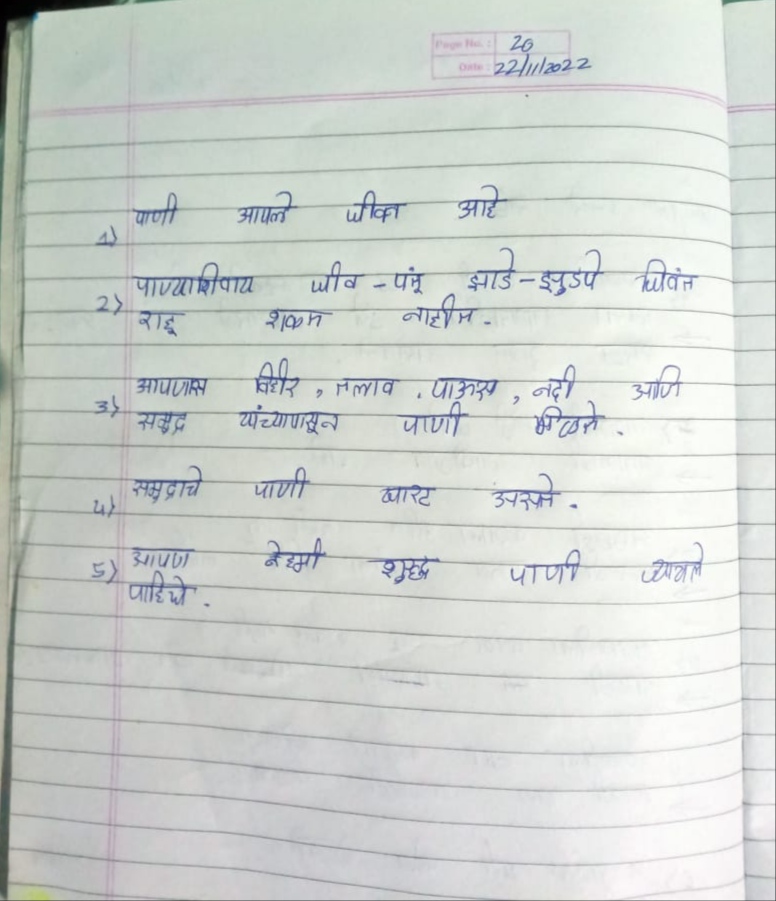 Page No.: 20
Date: 22/11/2022
1) पाणी आपले जीवन आहे
2) पाण्याशिवाय जीव - जंतू झाडे - झुडपे जिवंत
राहू शकत नाहीत.
3) आपणास विहीर, तलाव, पाऊस, नदी आणि
समुद्र यांच्यापासून पाणी मिळते.
4) समुद्राचे पाणी खारट असते.
5) आपण नेहमी शुद्ध पाणी प्यायले
पाहिजे.